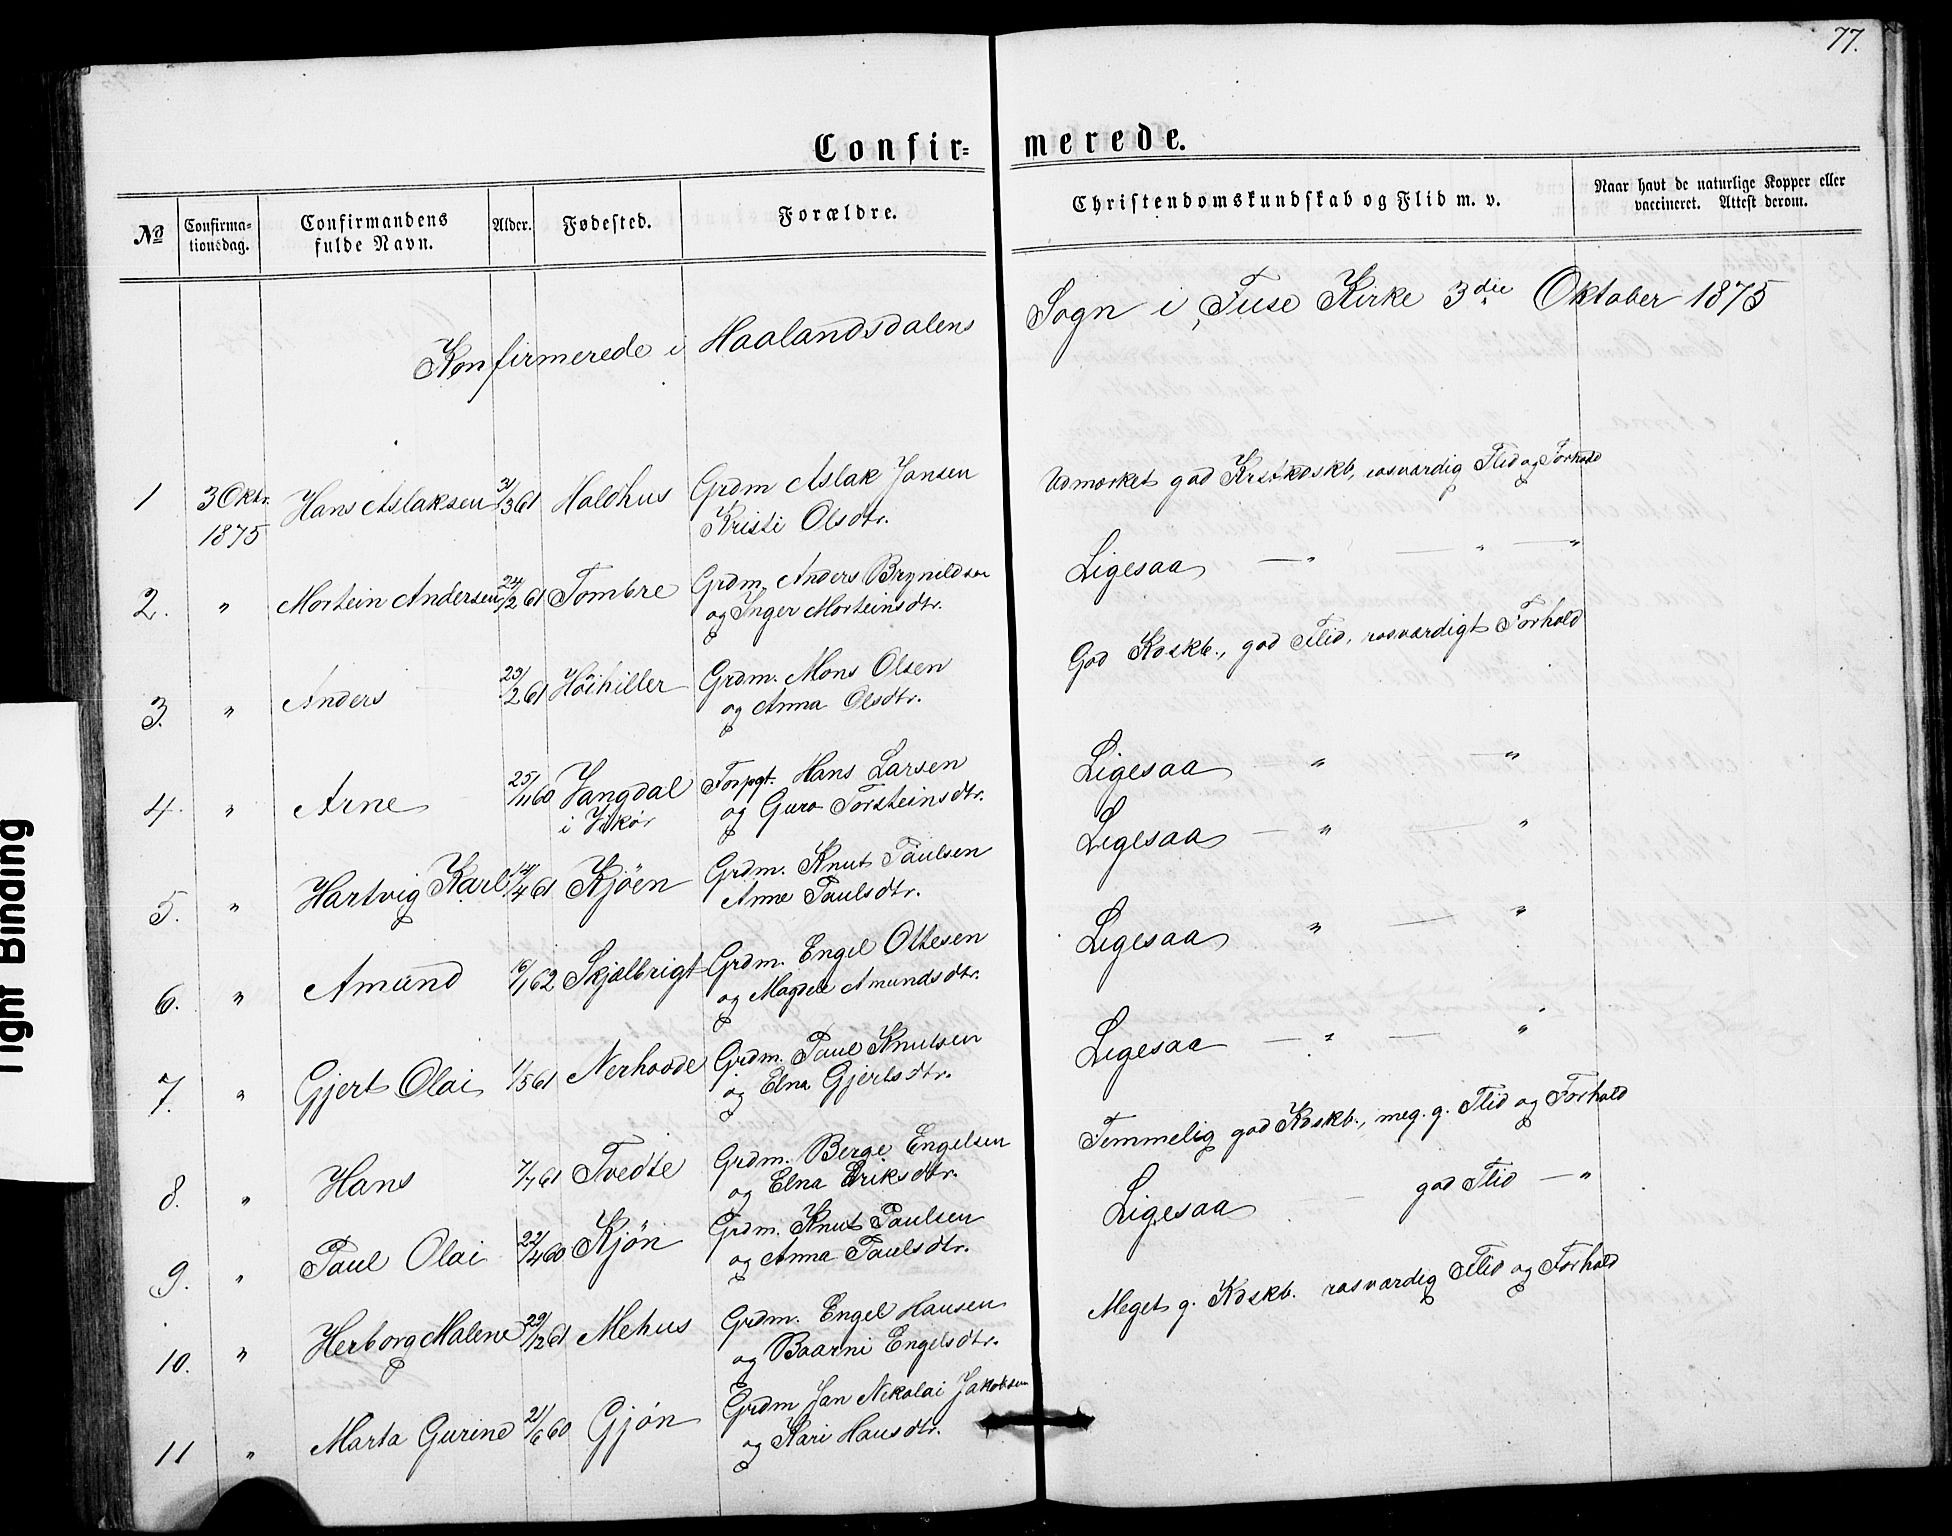 77.
Confir= merede.
No Confirma-tionsdag. Confirmandens fulde Navn. Alder. Fødested. Forældre. Christendomskundskab og Flid m. v. Naar havt de naturlige Kopper eller vaccineret. Attest derom.
Konfirmerede i Haalandsdalens Sogn i Fuse Kirke 3die Oktober 1875
1 3 Oktr. 1875 Hans Aslaksen 3/3 61 Haldhus Grdm Aslak Jansen
Kristi Olsdtr.
Udmærket god Krstkdskb, rosværdig Flid og Forhold
2. " Mortein Andersen 24/2 61 Tombre Grdm. Anders Brynildsen
og Inger Morteinsdtr.
Ligesaa — " — " — "
3. " Anders 23/2 61 Höihiller Grdm. Mons Olsen
og Anna Olsdtr.
God Kdskb., god Flid, rosværdigt Forhold
4. " Arne 25/11 60 Vangdal i Vikør Forpgt. Hans Larsen
og Guro Torsteinsdtr.
Ligesaa " — "
5. " Hartvig Karl 14/4 61 Kjöen Grdm. Knut Paulsen
Anne Paulsdtr.
Ligesaa — " — "
6. " Amund 6/1 62 Skjælbrigt Grdm. Engel Ottesen
og Magdele Amundsdtr.
Ligesaa " — "
7. " Gjert Olai 1/5 61 Nerhovde Grdm. Paul Knutsen
og Elna Gjertsdtr.
Ligesaa — " — "
8. " Hans 7/7 61 Tvedte Grdm. Berge Engelsen
og Elna Eriksdtr.
Temmelig god Kdskb., meg. g. Flid og Forhold
9. " Paul Olai 22/4 60 Kjön Grdm. Knut Paulsen
og Anna Paulsdtr.
Ligesaa — god Flid — "
10. " Herborg Malene 29/12 61 Mehus Grdm. Engel Hansen
og Baarni Engelsdtr.
Meget g. Kdskb. rosværdig Flid og Forhold
11 " Marta Gurine 21/6 60 Gjön Grdm Jan Nikolai Jakobsen
og Kari Hansdtr.
Tight Binding